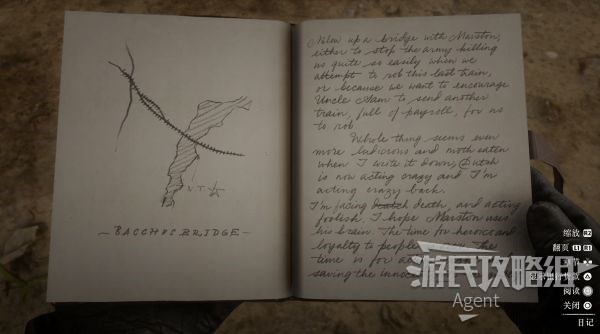 BACCHUS BRIDGE
Blew up a bridge with Marston,
either to stop the army killing
us quite so easily when we
attempt to rob this last train,
or because we want to encourage
Uncle Sam to send another
train, full of payroll, for us
to rob.
Whole thing seems even
more ludicrous and moth eaten
when I write it down, Dutch
is now acting crazy and I'm
acting crazy back.
I'm facing death, and acting
foolish. I hope Marston uses
his brain. The time for heroics and
loyalty to people The
time is for
saving the
缩放 R2
翻页 L1 R1
阅读
关闭
日记
游民攻略组
Agent